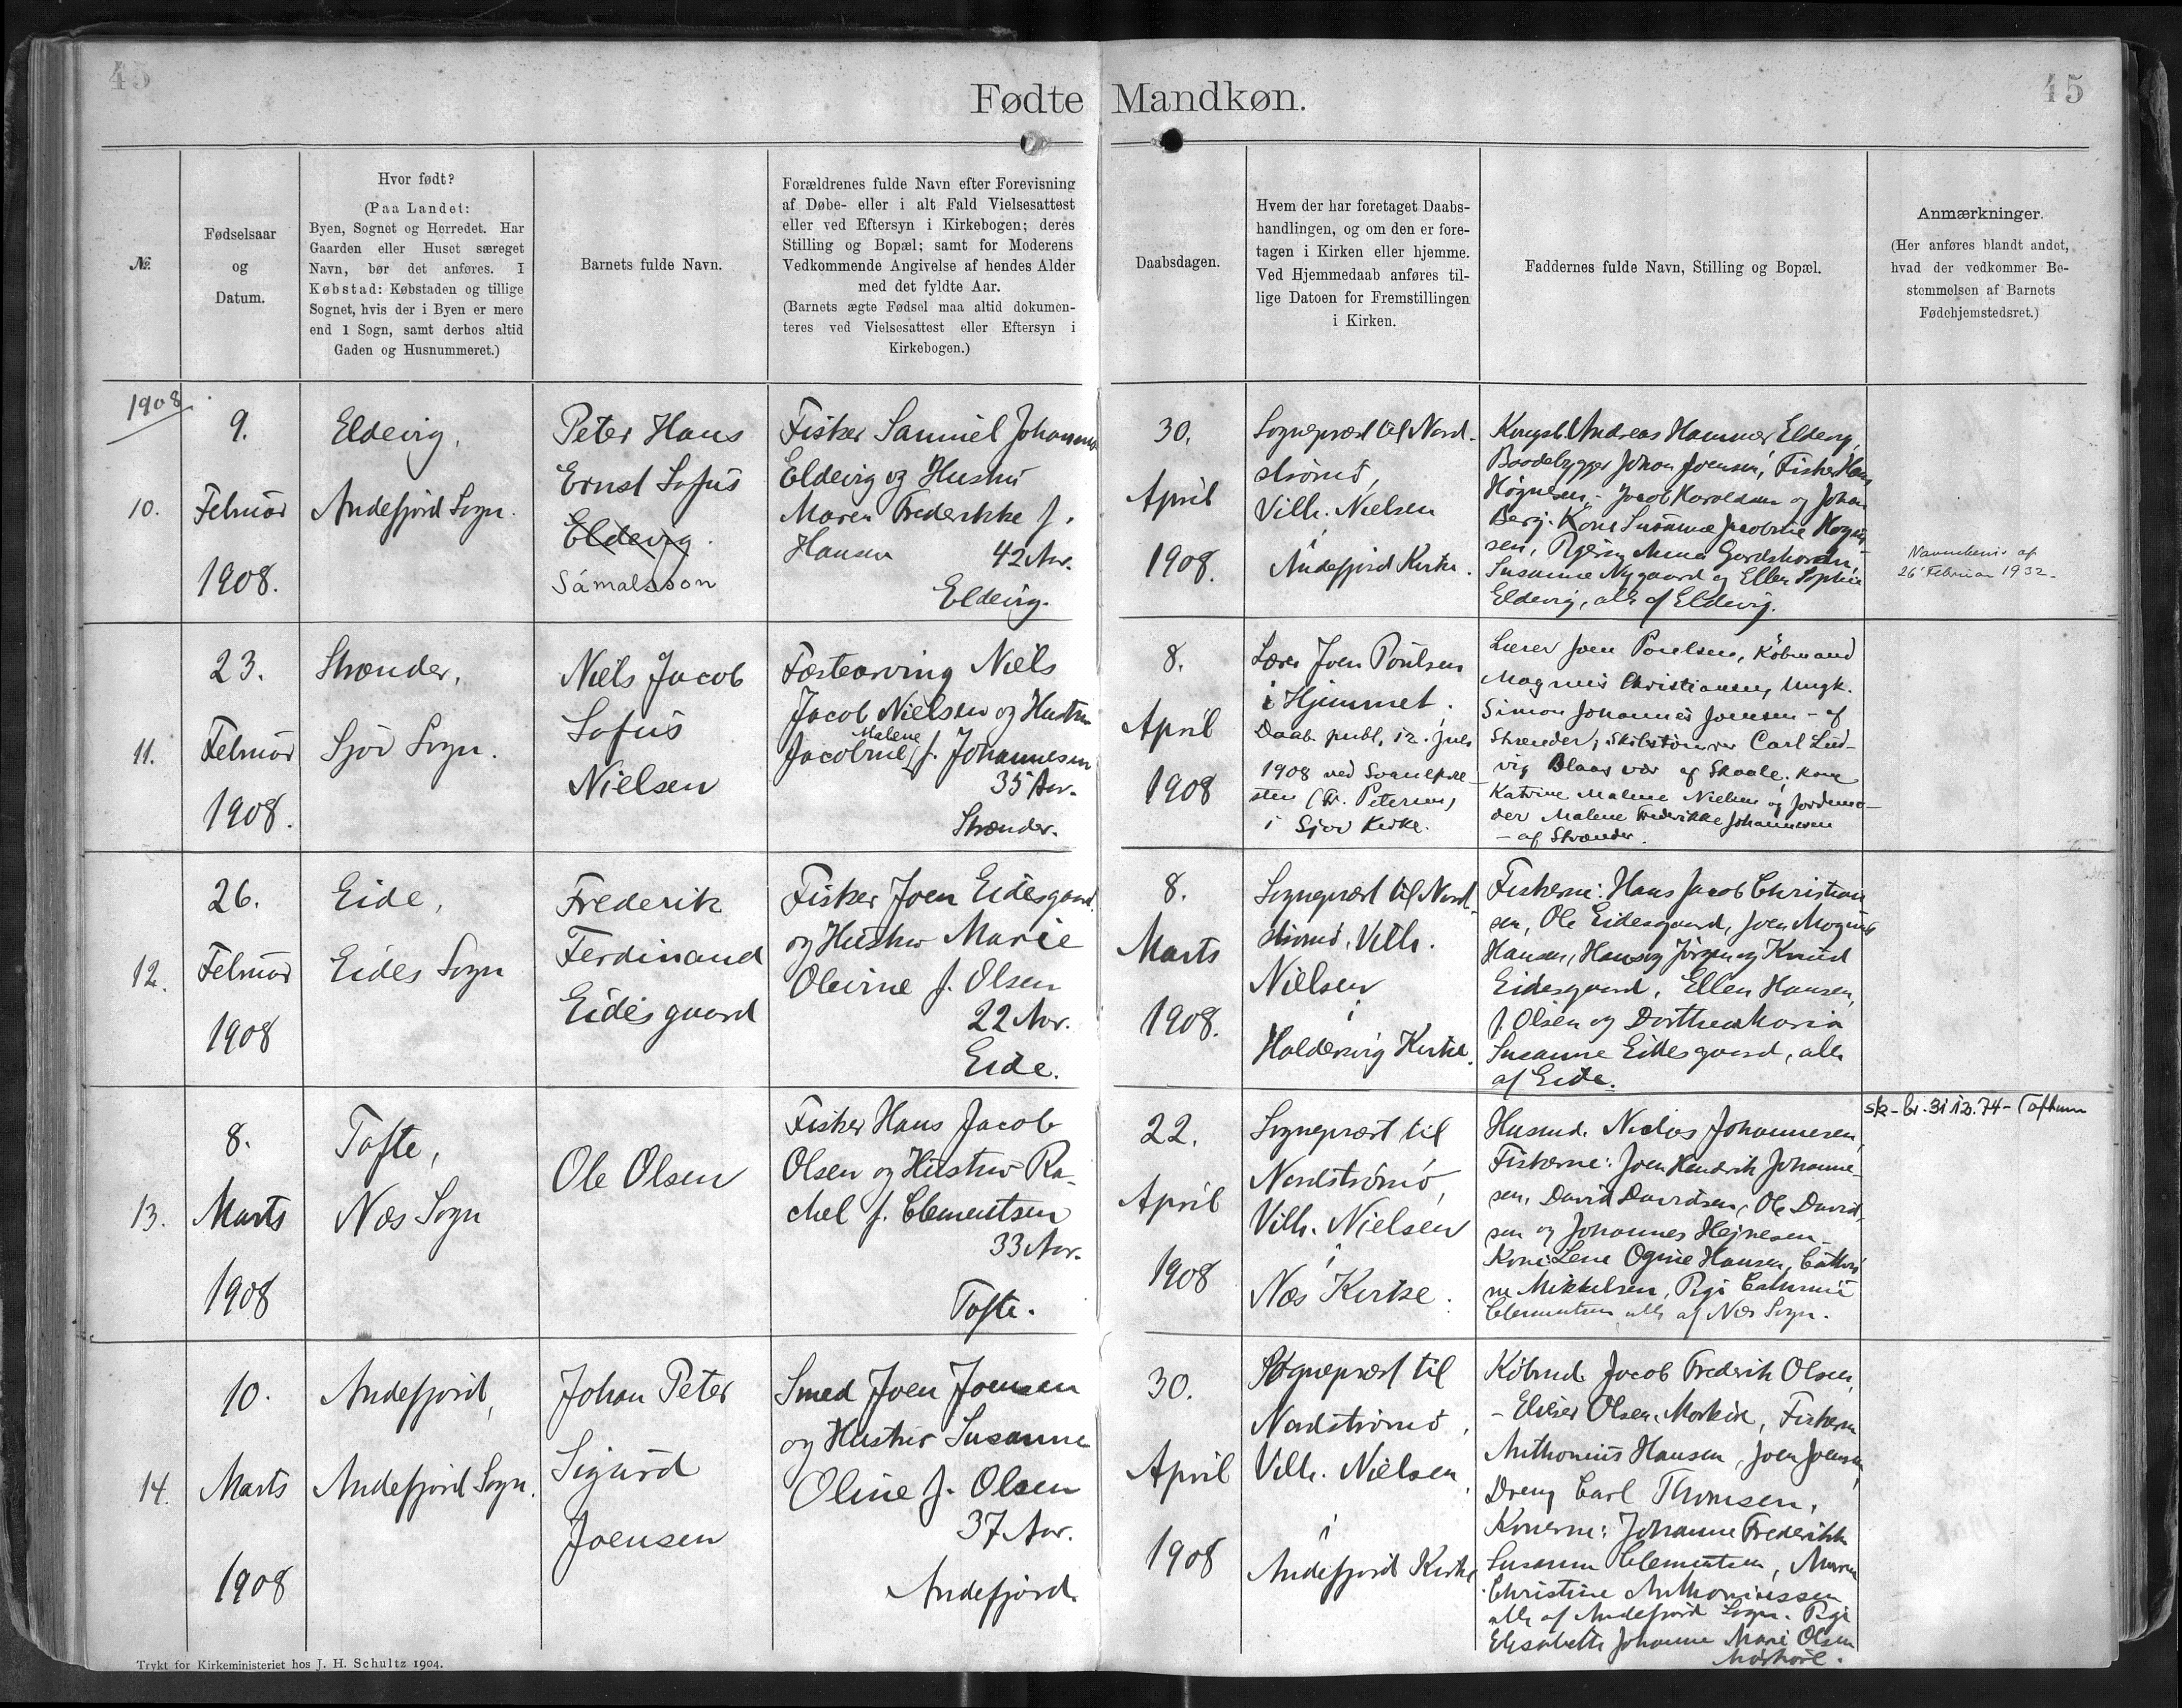 45
45
Fødte Mandkøn.
№
Fødselsaar
og
Datum.
Hvor født?
(Paa Landet:
Byen, Sognet og Herredet. Har
Gaarden eller Huset særeget
Navn, bør det anføres. I
Købstad: Købstaden og tillige
Sognet, hvis der i Byen er mere
end 1 Sogn, samt derhos altid
Gaden og Husnummeret.)
Barnets fulde Navn.
Forældrenes fulde Navn efter Forevisning
af Døbe- eller i alt Fald Vielsesattest
eller ved Eftersyn i Kirkebogen; deres
Stilling og Bopæl; samt for Moderens
Vedkommende Angivelse af hendes Alder
med det fyldte Aar.
(Barnets ægte Fødsel maa altid dokumen-
teres ved Vielsesattest eller Eftersyn i
Kirkebogen.)
Daabsdagen.
Hvem der har foretaget Daabs-
handlingen, og om den er fore-
tagen i Kirken eller hjemme.
Ved Hjemmedaab anføres til-
lige Datoen for Fremstillingen
i Kirken.
Faddernes fulde Navn, Stilling og Bopæl.
Anmærkninger.
(Her anføres blandt andet,
hvad der vedkommer Be-
stemmelsen af Barnets
Fødehjemstedsret.)
1908
10.
9.
Februar
1908.
Eldevig,
Andefjord Sogn.
Peter Hans
Ernst Sofus
Eldevig.
Sámalsson
Fisker Samuel Johannes
Eldevig og Hustru
Maren Frederikke f.
Hansen 42 Aar.
Eldevig.
30.
April
1908.
Sognepræst til Nord-
strømø,
Vilh. Nielsen
i
Andefjord Kirke.
Kongsb. Andreas Hammer Eldevig,
Baadebygger Johan Joensen, Fisker Hans
Høgnesen, Jacob Haraldsen og Johan
Berg. Kone Susanne Jacobine Høgne-
sen, Anna
Susanne Nygaard og Ellen Sophie
Eldevig, alle af Eldevig.
Navnebevis af
26' Februar 1932.
11.
23.
Februar
1908.
Strænder,
Sjov Sogn.
Niels Jacob
Sofus
Nielsen
Fæstearving Niels
Jacob Nielsen og Hustru
Malene
Jacobine f. Johannesen
35 Aar.
Strænder.
8.
April
1908
Lærer Joen Poulsen
i Hjemmet.
Daab publ. 12. Juli
1908 ved Sognepræ-
sten (Fr. Petersen)
i Sjov Kirke.
Lærer Joen Poulsen, Købmand
Magnus Christiansen, Ungk.
Simon Johannes Joensen - af
Strænder, Carl Lud-
vig af Skaale, Kone
Katrine Malene Nielsen og Jordemo-
der Malene Frederikke Johannesen
- af Strænder.
12.
26.
Februar
1908
Eide,
Eides Sogn
Frederik
Ferdinand
Eidesgaard
Fisker Joen Eidesgaard
og Hustru Marie
Olevine f. Olsen
22 Aar.
Eide.
8.
Marts
1908.
Sognepræst til Nord-
strømø, Vilh.
Nielsen
i
Haldervig Kirke.
Fiskerne: Hans Jacob Christian-
sen, Ole Eidesgaard, Joen Magnus
Hansen, Hans og Jørgen og Knud
Eidesgaard, Ellen Hansen,
f. Olsen og Dorthea Maria
Susanne Eidesgaard, alle
af Eide.
13.
8.
Marts
1908
Tofte,
Næs Sogn
Ole Olsen
Fisker Hans Jacob
Olsen og Hustru Ra-
chel f. Clementsen
33 Aar.
Tofte.
22.
April
1908
Sognepræst til
Nordstrømø,
Vilh. Nielsen
i
Næs Kirke.
Husmd. Niclas Johannesen,
Fiskerne: Joen Hendrik Johanne-
sen, David Davidsen, Ole David-
sen og Johannes Hejnesen.
Kone Lene Hansen, Cathri-
ne Mikkelsen, Pige Cathrine
Clementsen alle af Næs Sogn.
sk-br. 31.12.74 - Toftum
14.
10.
Marts
1908
Andefjord,
Andefjord Sogn.
Johan Peter
Sigurd
Joensen
Smed Joen Joensen
og Hustru Susanne
Oline f. Olsen
37 Aar.
Andefjord.
30.
April
1908
Sognepræst til
Nordstrømø,
Vilh. Nielsen,
i
Andefjord Kirke
Købmd. Jacob Frederik Olsen,
- Elieser Olsen, Fiskerne
Anthonius Hansen, Joen Joensen,
Dreng Carl Thomsen.
Konerne: Johanne Frederikke
Susanne Clementsen, Maren
Christine Anthoniussen
alle af Andefjord Sogn. Pige
Elisabeth Johanne Marie Olsen
Trykt for Kirkeministeriet hos J. H. Schultz 1904.